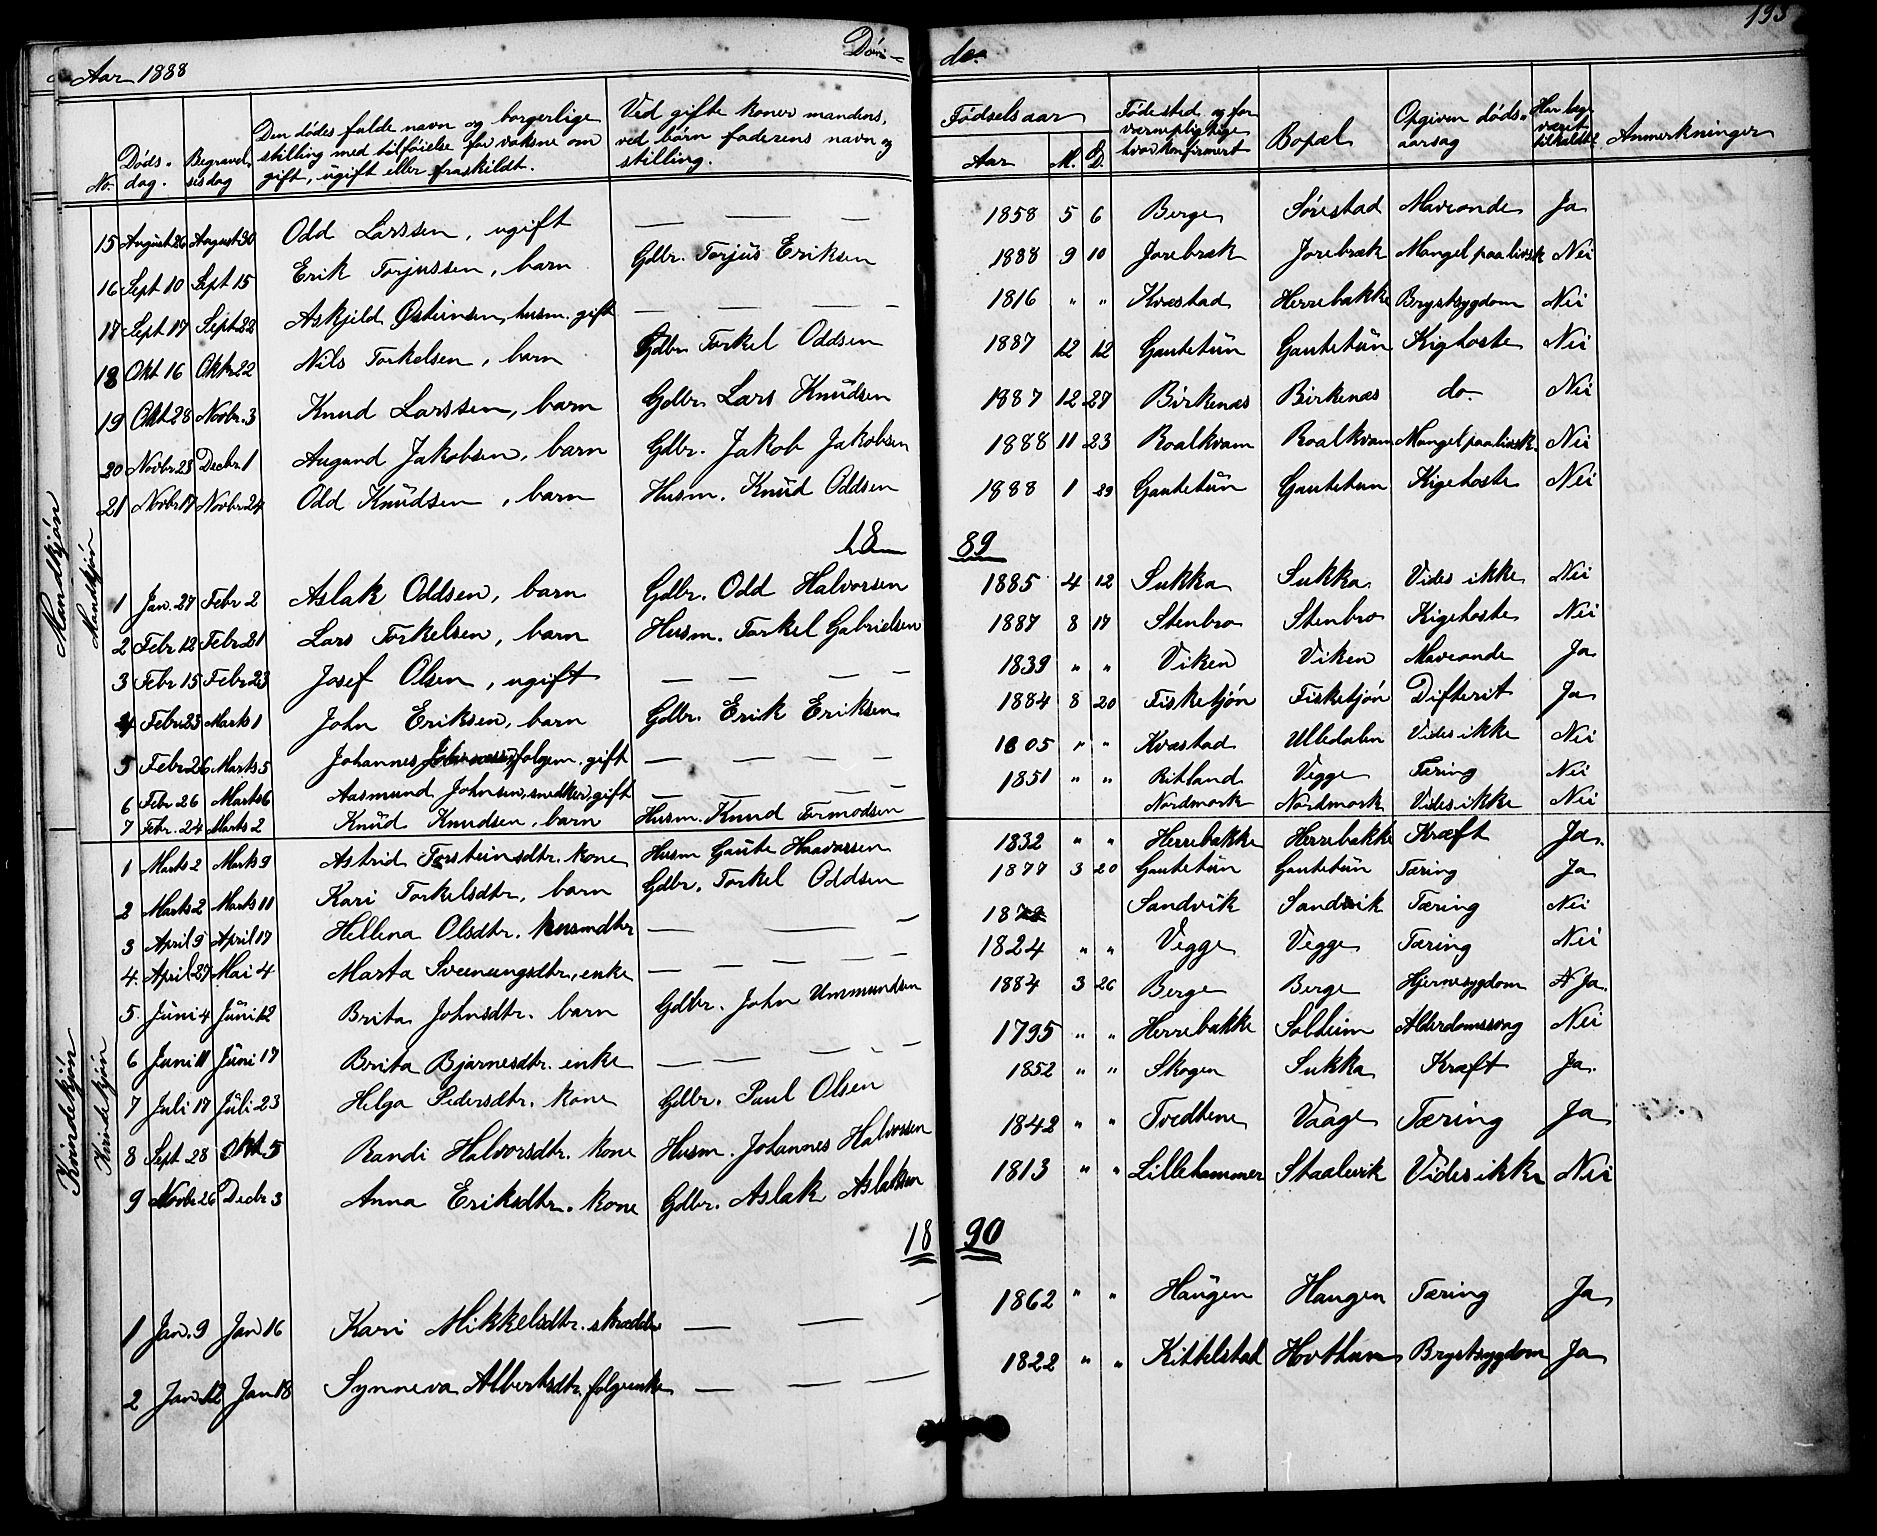 Aar 1888 Dö- de. 193
No. Döds- dag. Begravel- sesdag Den dödes fulde navn og borgerlige stilling med tilföielse for voksne om gift, ugift eller fraskildt. Ved gifte koner mandens, ved börn faderens navn og stilling. Födselsaar Aar M. D. Födested og for værnepligtige hvor konfirmert Bopæl Opgiven döds- aarsag Har læge været tilkaldt Anmerkninger
Mandkjön
Mandkjön
15 August 26 August 30 Odd Larssen, ugift — — — 1858 5 6 Berge Sörestad Maveonde Ja
16 Sept 10 Sept 15 Erik Torjussen, barn Gdbr. Torjus Eriksen 1888 9 10 Jorebræk Jorebræk Mangel paa livsk Nei
17 Sept 17 Sept 22 Askjeld Østeinsen, husm. gift — — — — 1816 " " Kvæstad Herrebakke Brystsygdom Nei
18 Okt 16 Oktr 22 Nils Torkelsen, barn Gdbr Torkel Oddsen 1887 12 12 Gautetun Gautetun Kighoste Nei
19 Okt 28 Novbr. 3 Knud Larssen, barn Gdbr. Lars Knudsen 1887 12 27 Birkenæs Birkenæs do. Nei
20 Novbr 23 Decbr 1 Augund Jakobsen, barn Gdbr. Jakob Jakobsen 1888 11 23 Roalkvam Roalkvam Mangel paa livsk. Nei
21 Novbr 17 Novbr 24 Odd Knudsen, barn Husm. Knud Oddsen 1888 1 29 Gautetun Gautetun Kigehoste Nei
18 89
1 Jan. 27 Febr 2 Aslak Oddsen, barn Gdbr. Odd Halvorsen 1885 4 12 Sukka Sukka Vides ikke Nei
2 Febr 12 Febr 21 Lars Torkelsen, barn Husm. Torkel Gabrielsen 1887 8 17 Stenbro Stenbro Kigehoste Nei
3 Febr 15 Febr 23 Josef Olsen, ugift — — — — 1839 " " Viken Viken Maveonde Ja
4 Febr 23 Marts 1 John Eriksen, barn Gdbr. Erik Eriksen 1884 8 20 Fisketjön Fisketjön Difterit Ja
5 Febr 26 Marts 5 Johannes folgem. gift — — — — 1805 " " Kvæstad Ulledalen Vides ikke Nei
6 Febr 26 Marts 6 Aasmund Johnsen, snedker, gift — — — — 1851 " " Ritland Vegge Tæring Nei
7 Febr. 24 Marts 2 Knud Knudsen, barn Husm. Knud Tormodsen Nordmork Nordmork Vides ikke Nei
Kvindekjön
Kvindekjön
1 Marts 2 Marts 9 Astrid Torsteinsdtr. kone Husm Gaute Haavarsen 1832 " " Herrebakke Herrebakke Kræft Ja.
2 Marts 2 Marts 11 Kari Torkelsdtr, barn Gdbr. Torkel Oddsen 1877 3 20 Gautetun Gautetun Tæring Ja
3 April 5 April 17 Hellena Olsdtr. husmdtr — — — 18 Sandvik Sandvik Tæring Nei
4. April 27 Mai 4 Marta Sveinungsdtr, enke — — — — 1824 " " Vegge Vegge Tæring Nei
5. Juni 4 Juni 12 Brita Johnsdtr. barn Gdbr. John Ummundsen 1884 3 26 Berge Berge Hjernesygdom Ja.
6 Juni 11 Juni 17 Brita Bjarnesdtr. enke — — — — 1795 " " Herrebakke Solheim Alderdomssvag Nei
7 Juli 17 Juli 23 Helga Pedersdtr. kone Gdbr. Paul Olsen 1852 " " Skogen Sukka Kræft Ja.
8 Sept 28 Okt 5 Randi Halvorsdtr. kone Husm. Johannes Halvorsen 1842 " " Tvedtene Vaage Tæring Ja
9 Novbr 26 Decbr 3 Anna Eriksdtr. kone Gdbr. Aslak Aslaksen 1813 " " Lillehammer Staalevik Vides ikke Nei
18 90
1 Jan. 9 Jan 16 Kari Mikkelsdtr. — — — 1862 " " Haugen Haugen Tæring Ja
2 Jan 12 Jan 18 Synneva Albertsdtr. folgeenke — — — 1822 " " Kittelstad Hovthun Brystsygdom Ja